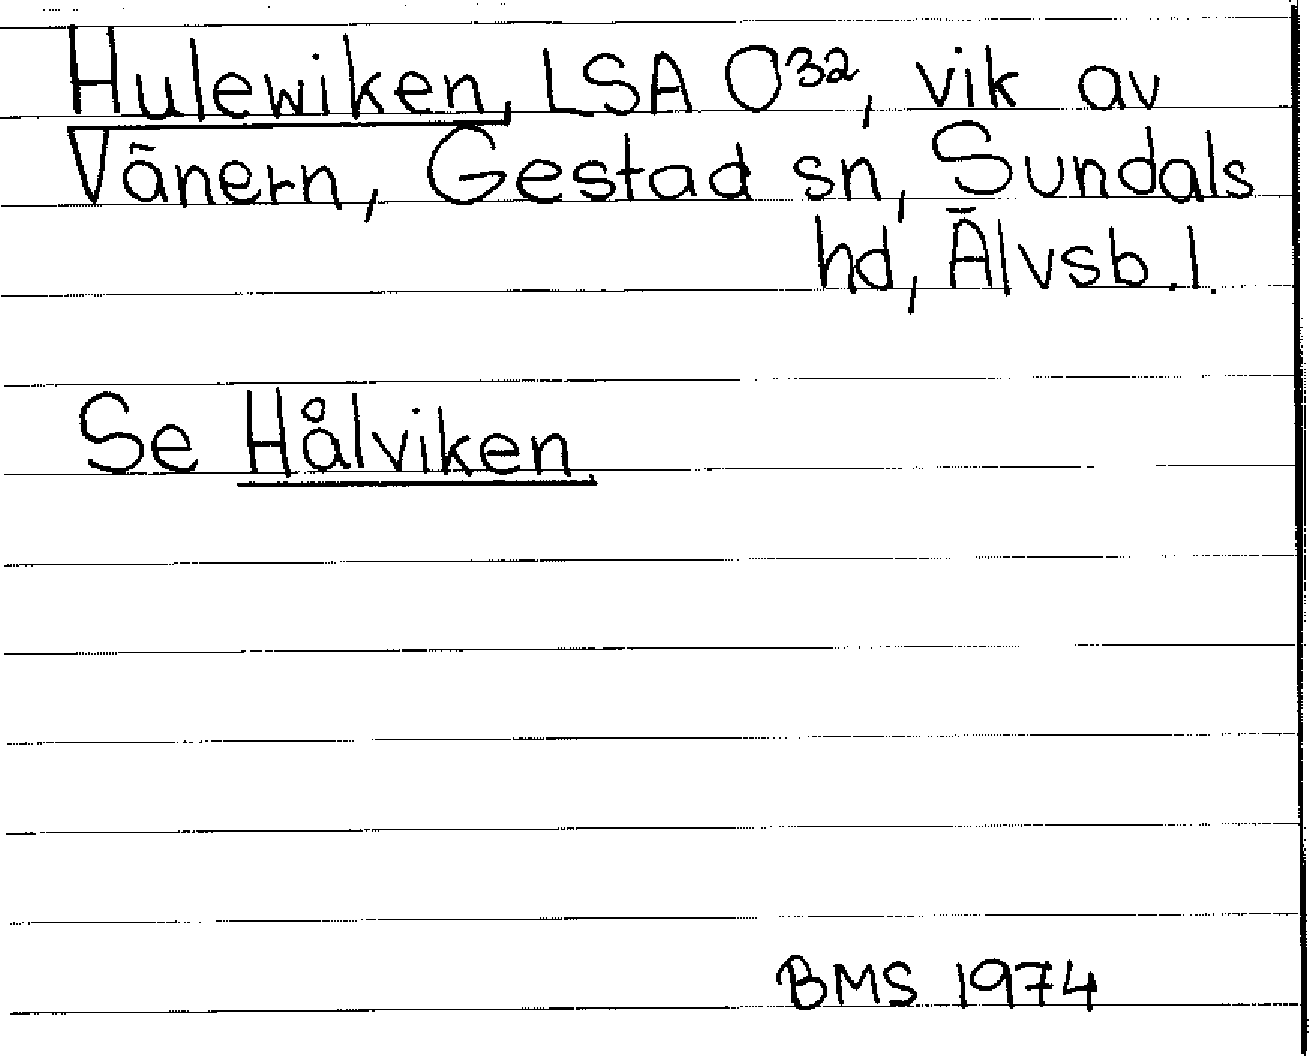 Hulewiken, LSA O³², vik av
Vänern, Gestad sn, Sundals
hd, Älvsb. l.
Se Hålviken.
BMS 1974